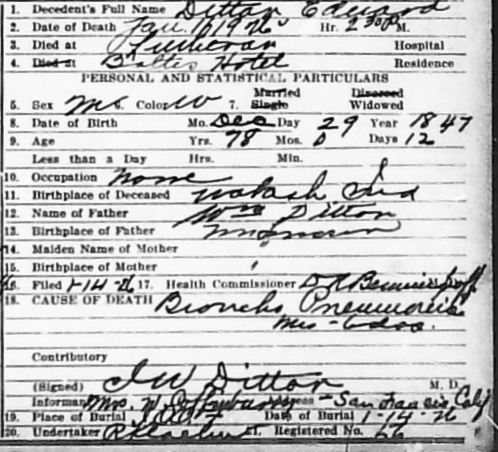 1. Decedent's Full Name Dittan Eduard
2. Date of Death Jan. 10 1926 Hr. 2 30 P M.
3. Died at Lutheran Hospital
4. Died at Hotel Residence
PERSONAL AND STATISTICAL PARTICULARS
5. Sex M 6. Color W 7. Married Single Divorced Widowed
8. Date of Birth Mo. Dec Day 29 Year 1847
9. Age Yrs. 78 Mos. 0 Days 12
Less than a Day Hrs. Min.
10. Occupation None
11. Birthplace of Deceased Wabash Ind
12. Name of Father Wm Ditton
13. Birthplace of Father
14. Maiden Name of Mother
15. Birthplace of Mother
16. Filed 1-14-26 17. Health Commissioner
18. CAUSE OF DEATH Broncho Pneumonia
Contributory
(Signed) Dittan M. D.
Informant Mrs. W. San Francis Calif
19. Place of Burial Date of Burial 1-14-26
20. Undertaker 21. Registered No. 66